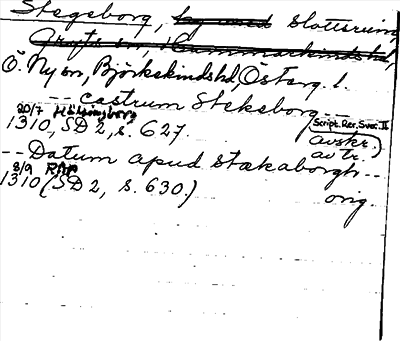 Stegeborg, slottsruin,
Ö. Ny sn, Björkekinds hd, Östergl.
-- castrum Stekeborg --
20/7 Hälsingborg
1310, SD 2, s. 627. (Script. Rer. Svec. II
avskr.)
av tr.
-- Datum apud Stækaborgh --
8/9 RAP
1310 (SD 2, s. 630) orig.